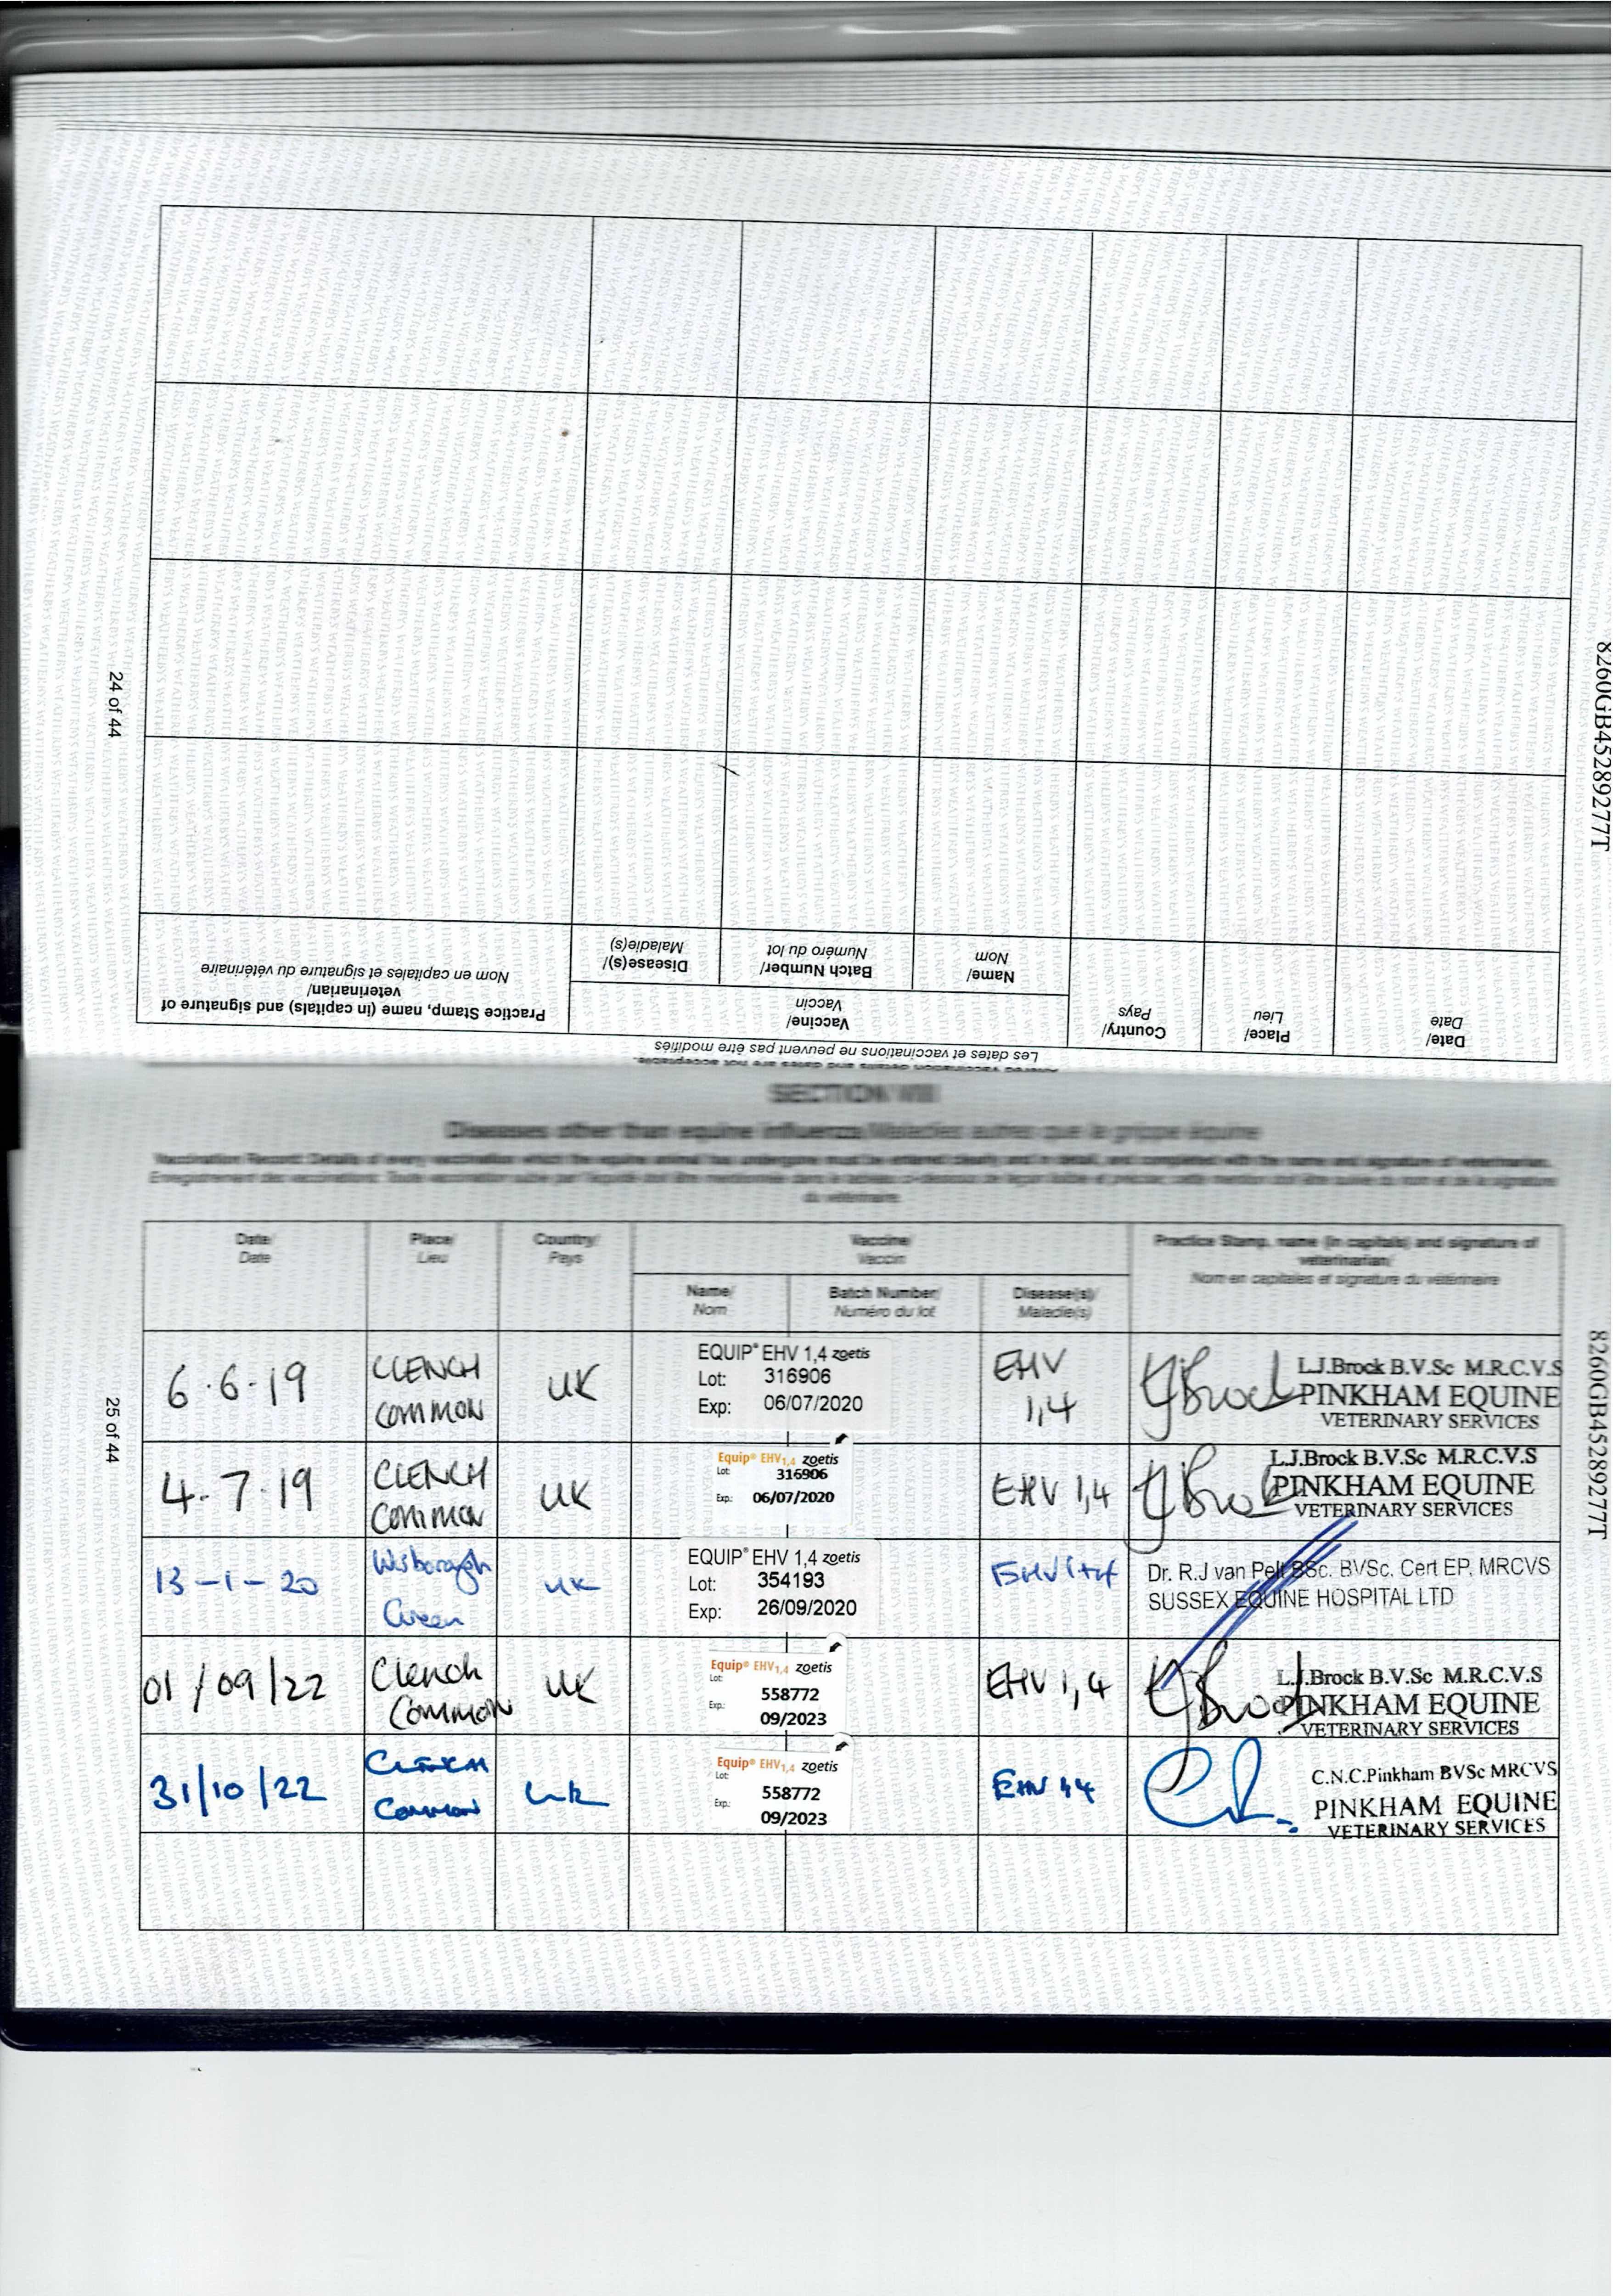 8260GB45289277T
24 of 44
Altered vaccination details and dates are not acceptable.
Les dates et vaccinations ne peuvent pas être modifiés
Date/
Date
Place/
Lieu
Country/
Pays
Vaccine/
Vaccin
Name/
Nom
Batch Number/
Numéro du lot
Disease(s)/
Maladie(s)
Practice Stamp, name (in capitals) and signature of
veterinarian/
Nom en capitales et signature du vétérinaire
SECTION VIII
Diseases other than equine influenza/Maladies autres que la grippe équine
Vaccination Record: Details of every vaccination which the equine animal has undergone must be entered clearly and in detail, and completed with the name and signature of veterinarian.
Enregistrement des vaccinations: Toute vaccination subie par l'équidé doit être mentionnée dans le tableau ci-dessous de façon lisible et précise; cette mention doit être suivie du nom et de la signature
du vétérinaire.
Date/
Date
Place/
Lieu
Country/
Pays
Vaccine/
Vaccin
Name/
Nom
Batch Number/
Numéro du lot
Disease(s)/
Maladie(s)
Practice Stamp, name (in capitals) and signature of
veterinarian/
Nom en capitales et signature du vétérinaire
6.6.19
CLENCH
COMMON
UK
EQUIP® EHV 1,4 zoetis
Lot: 316906
Exp: 06/07/2020
EHV
1,4
L.J.Brock B.V.Sc M.R.C.V.S
PINKHAM EQUINE
VETERINARY SERVICES
4.7.19
CLENCH
COMMON
UK
Equip® EHV1,4 zoetis
Lot: 316906
Exp.: 06/07/2020
EHV 1,4
L.J.Brock B.V.Sc M.R.C.V.S
PINKHAM EQUINE
VETERINARY SERVICES
13-1-20
Wisborough
Green
UK
EQUIP® EHV 1,4 zoetis
Lot: 354193
Exp: 26/09/2020
EHV 1+4
Dr. R.J van Pelt BSc. BVSc. Cert EP, MRCVS
SUSSEX EQUINE HOSPITAL LTD
01/09/22
Clench
Common
UK
Equip® EHV1,4 zoetis
Lot:
558772
Exp.:
09/2023
EHV 1,4
L.J.Brock B.V.Sc M.R.C.V.S
PINKHAM EQUINE
VETERINARY SERVICES
31/10/22
CLENCH
COMMON
UK
Equip® EHV1,4 zoetis
Lot:
558772
Exp.:
09/2023
EHV 1,4
C.N.C.Pinkham BVSc MRCVS
PINKHAM EQUINE
VETERINARY SERVICES
25 of 44
8260GB45289277T